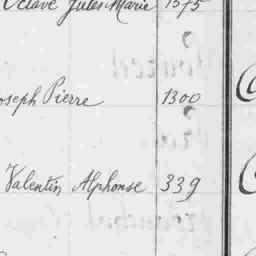 Octave Jules Marie 1575
Joseph Pierre 1300
Valentin Alphonse 339